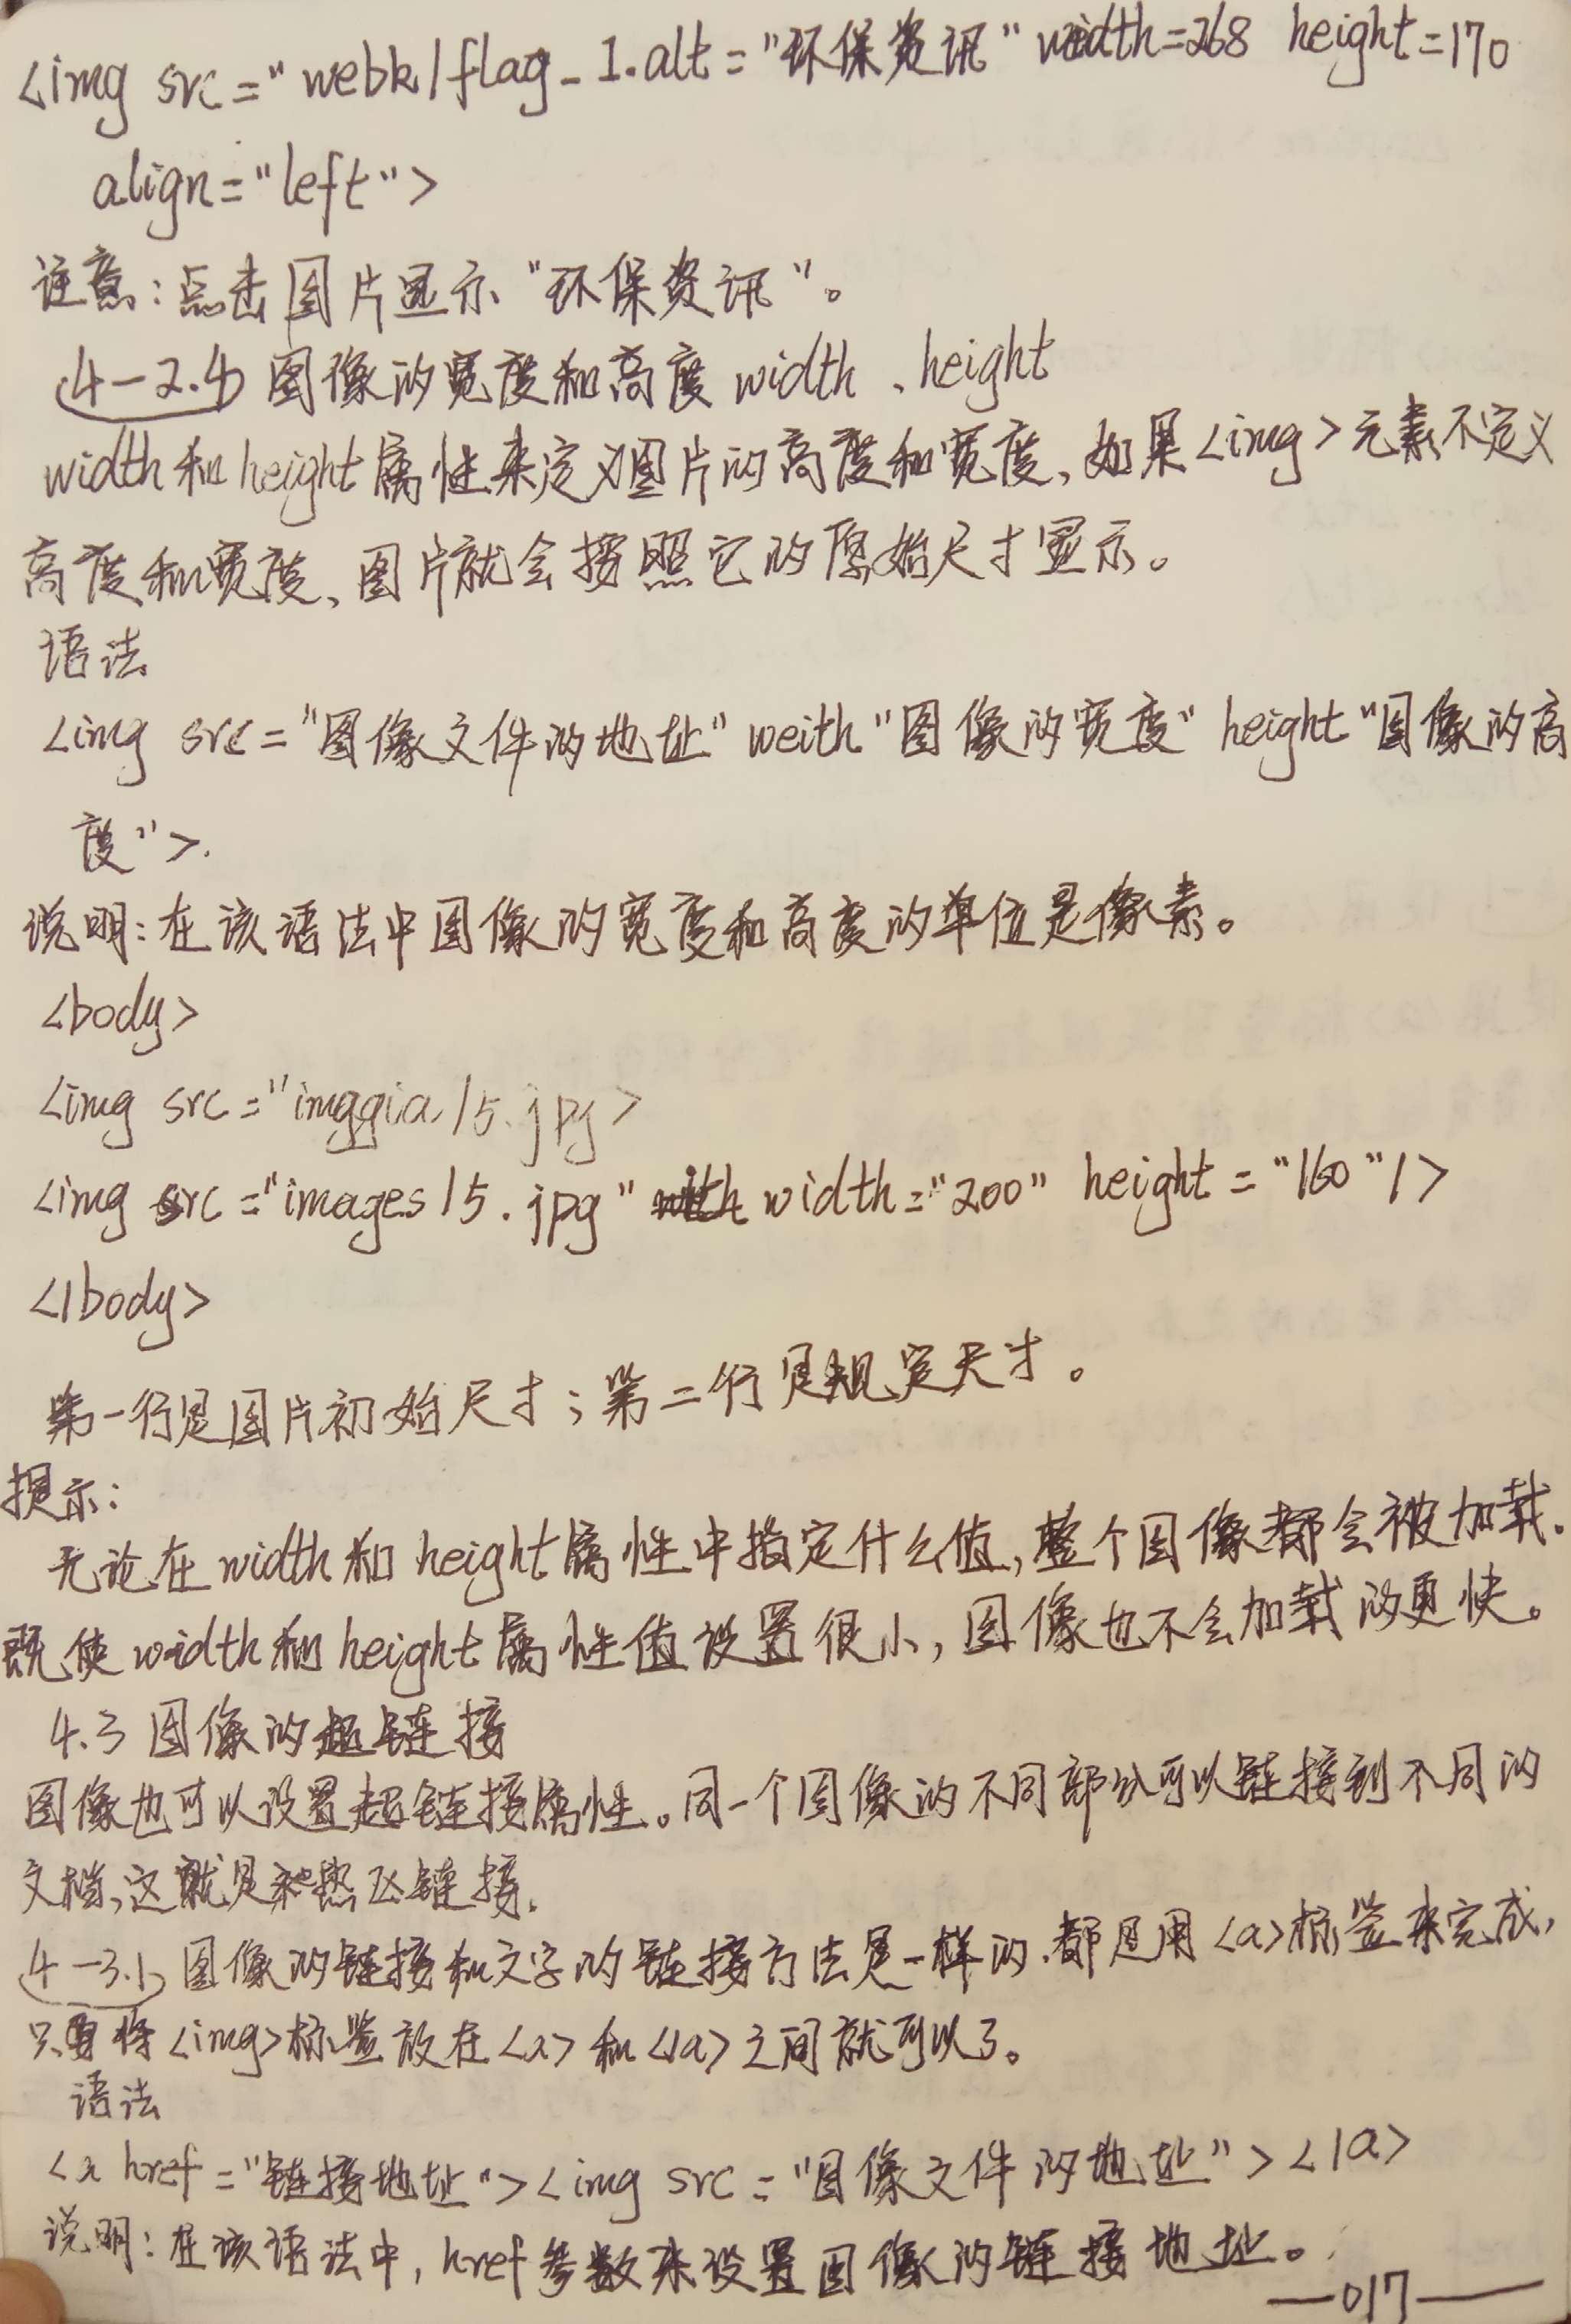 <img src="webk/flag_1.alt="环保资讯" width=268 height=170
align="left">
注意:点击图片显示"环保资讯"。
4-2.4 图像的宽度和高度 width、height
width和height属性来定义图片的高度和宽度、如果<img>元素不定义
高度和宽度、图片就会按照它的原始尺寸显示。
语法
<img src="图像文件的地址" weith"图像的宽度" height"图像的高
度">.
说明:在该语法中图像的宽度和高度的单位是像素。
<body>
<img src="imggia/5.jpg>
<img src="images/5.jpg" width="200" height="160"/>
</body>
第一行是图片初始尺寸;第二行是规定尺寸。
提示:
无论在width和height属性中指定什么值,整个图像都会被加载.
既使width和height属性值设置很小,图像也不会加载的更快。
4.3 图像的超链接
图像也可以设置超链接属性。同一个图像的不同部分可以链接到不同的
文档,这就是热区链接.
4-3.1 图像的链接和文字的链接方法是一样的.都是用<a>标签来完成,
只要将<img>标签放在<a>和</a>之间就可以了。
语法
<a href="链接地址"><img src="图像文件的地址"></a>
说明:在该语法中,href参数来设置图像的链接地址。
—017—